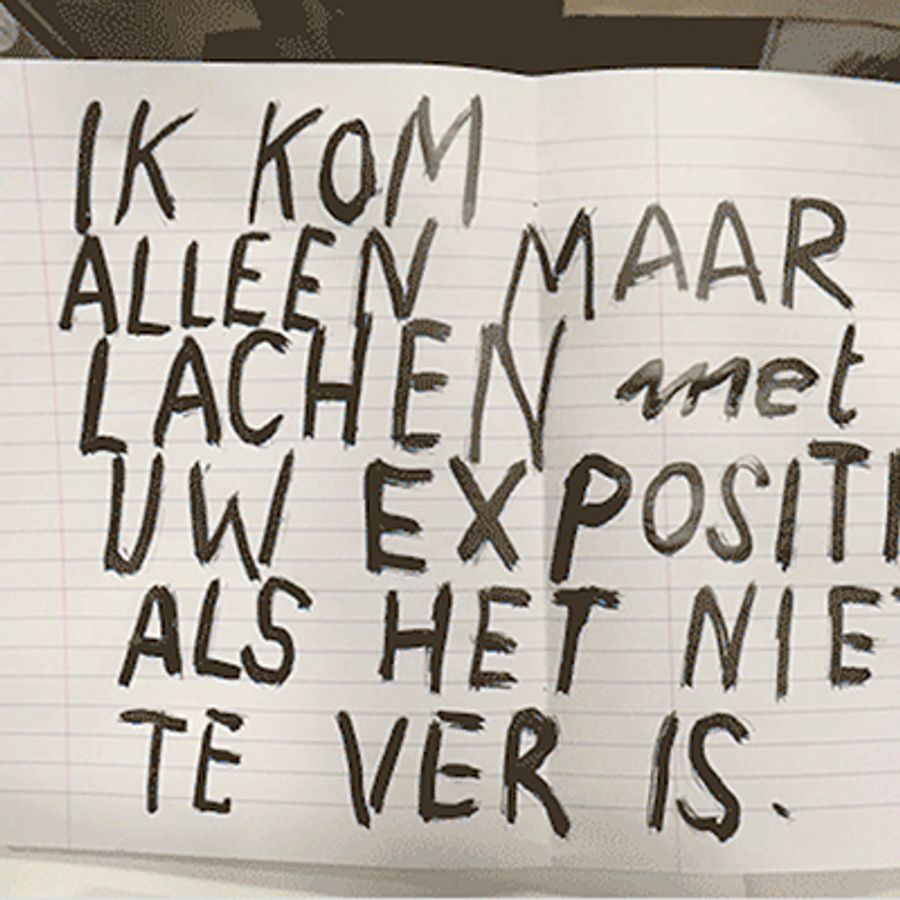 IK KOM
ALLEEN MAAR
LACHEN met
UW EXPOSITI
ALS HET NIET
TE VER IS.